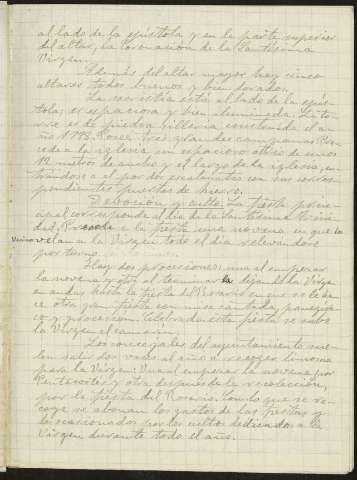 al lado de la epístola y en la parte superior
del altar, la Coronación de la Santísima
Virgen.
Además del altar mayor hay cinco
altares todos buenos y bien dorados.
La sacristía está al lado de la epís-
tola; es espaciosa y bien iluminada. La to-
rre es de piedra sillería, construida el a-
ño 1773. Posee tres grandes campanas. Pre-
cede a la iglesia un espacioso atrio de unos
12 metros de ancho y el largo de la iglesia, en-
trándose a el por dos con sus corres-
pondientes puertas de hierro.
Devoción y culto. La fiesta princi-
pal corresponde al día de la Santísima Trini-
dad. Precede a la fiesta una novena en que la
velan a la Virgen todo el día relevándose
por turno.
Hay dos procesiones: una al empezar
la novena y otra al terminar la dejando la Virgen
en andas hasta la fiesta del Rosario en que se le ha-
ce otra gran fiesta con misa cantada, panegíri-
co y procesión. Celebrada esta fiesta se sube
la Virgen al camarín.
Los concejales del ayuntamiento sue-
len salir dos veces al año a recoger limosna
para la Virgen: Una al empezar la novena, por
Pentecostés y otra después de la recolección,
por la fiesta del Rosario. Con lo que se re-
coge se abonan los gastos de las fiestas y
los ocasionados por los cultos dedicados a la
Virgen durante todo el año.